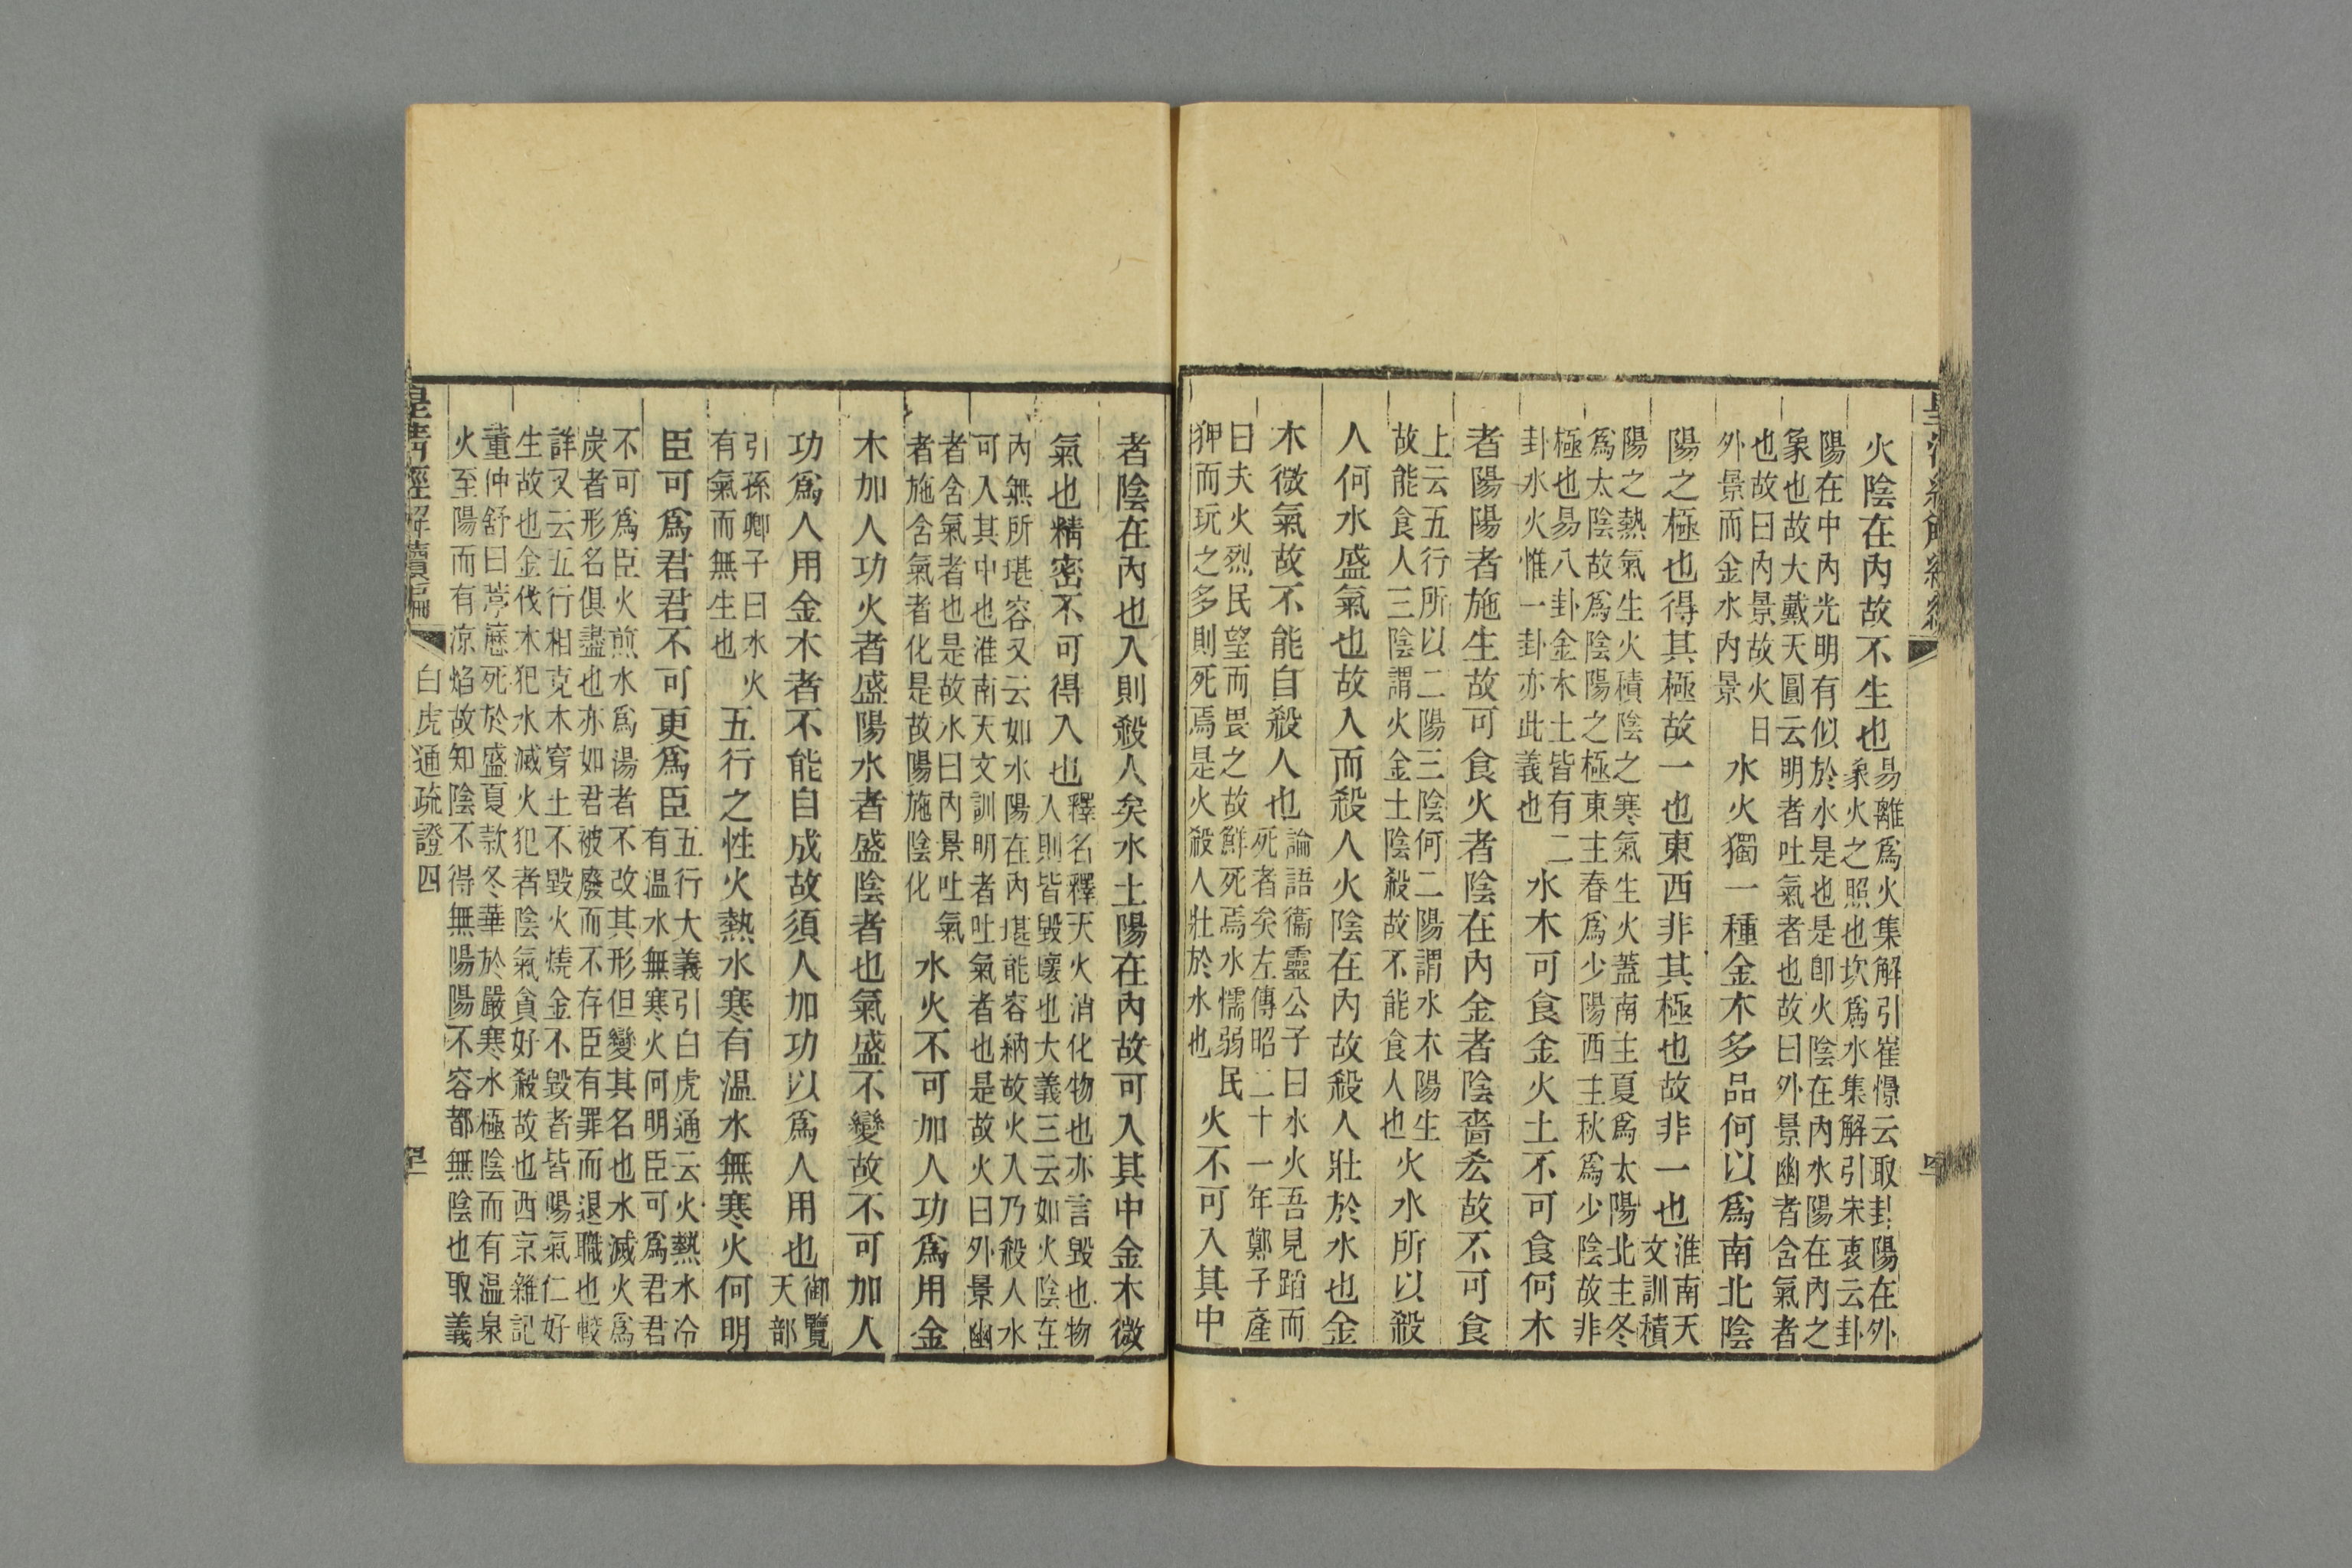 火陰在內故不生也
易離爲火集解引崔憬云取卦陽在外
象火之照也坎爲水集解引宋衷云卦
陽在中內光明有似於水是也是卽火陰在內水陽在內之
象也故大戴天圓云明者吐氣者也故曰外景幽者含氣者
也故曰內景故火日
外景而金水內景
水火獨一種金木多品何以爲南北陰
陽之極也得其極故一也東西非其極也故非一也
淮南天
文訓積
陽之熱氣生火積陰之寒氣生火蓋南主夏爲太陽北主冬
爲太陰故爲陰陽之極東主春爲少陽西主秋爲少陰故非
極也易八卦金木土皆有二
卦水火惟一卦亦此義也
水木可食金火土不可食何木
者陽陽者施生故可食火者陰在內金者陰嗇吝故不可食
上云五行所以二陽三陰何二陽謂水木陽生
故能食人三陰謂火金土陰殺故不能食人也
火水所以殺
人何水盛氣也故入而殺人火陰在內故殺人壯於水也金
木微氣故不能自殺人也
論語衞靈公子曰水火吾見蹈而
死者矣左傳昭二十一年鄭子產
曰夫火烈民望而畏之故鮮死焉水懦弱民
狎而玩之多則死焉是火殺人壯於水也
火不可入其中
者陰在內也入則殺人矣水土陽在內故可入其中金木微
氣也精密不可得入也
釋名釋天火消化物也亦言毀也物
入則皆毀壞也大義三云如火陰在
內無所堪容又云如水陽在內堪能容納故火入乃殺人水
可入其中也淮南天文訓明者吐氣者也是故火曰外景幽
者含氣者也是故水曰內景吐氣
者施含氣者化是故陽施陰化
水火不可加人功爲用金
木加人功火者盛陽水者盛陰者也氣盛不變故不可加人
功爲人用金木者不能自成故須人加功以爲人用也
御覽
天部
引孫卿子曰水火
有氣而無生也
五行之性火熱水寒有温水無寒火何明
臣可爲君君不可更爲臣
五行大義引白虎通云火熱水冷
有温水無寒火何明臣可爲君君
不可爲臣火煎水爲湯者不改其形但變其名也水滅火爲
炭者形名俱盡也亦如君被廢而不存臣有罪而退職也較
詳又云五行相克木穿土不毀火燒金不毀者皆陽氣仁好
生故也金伐木犯水滅火犯者陰氣貪好殺故也西京雜記
董仲舒曰葶藶死於盛夏款冬華於嚴寒水極陰而有温泉
火至陽而有涼焰故知陰不得無陽陽不容都無陰也取義
皇清經解續編
白虎通疏證四